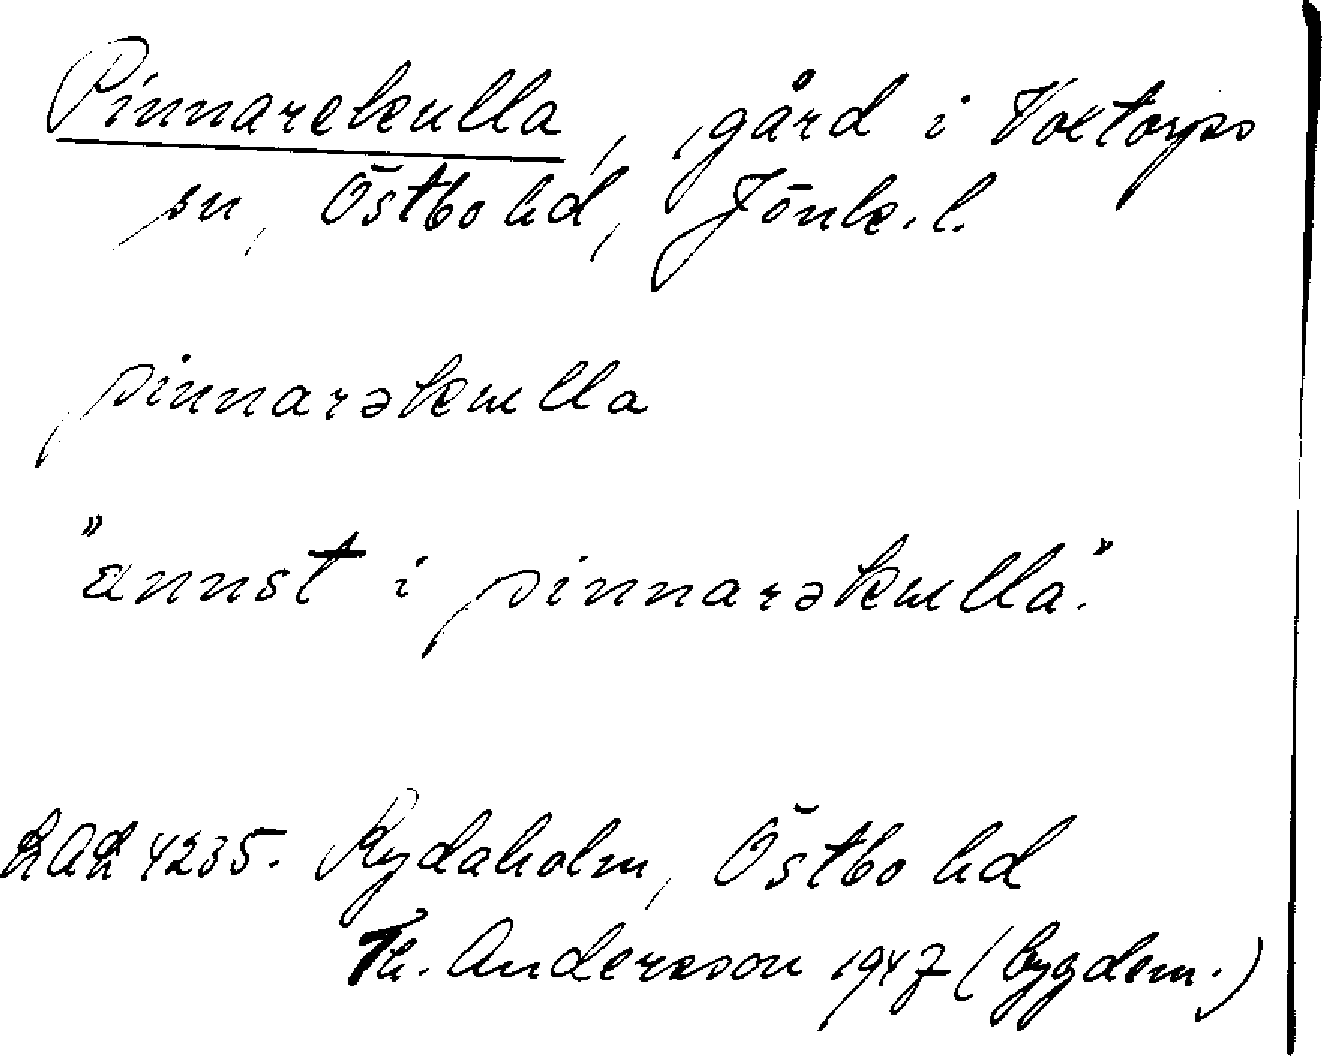 Pinnarekulla, gård i Voxtorps
sn, Östbo hd, Jönk. l.
pinnarəkulla
"annst i pinnarəkulla."
LAL 4235. Rydaholm, Östbo hd
Th. Andersson 1947 (bygdem.)